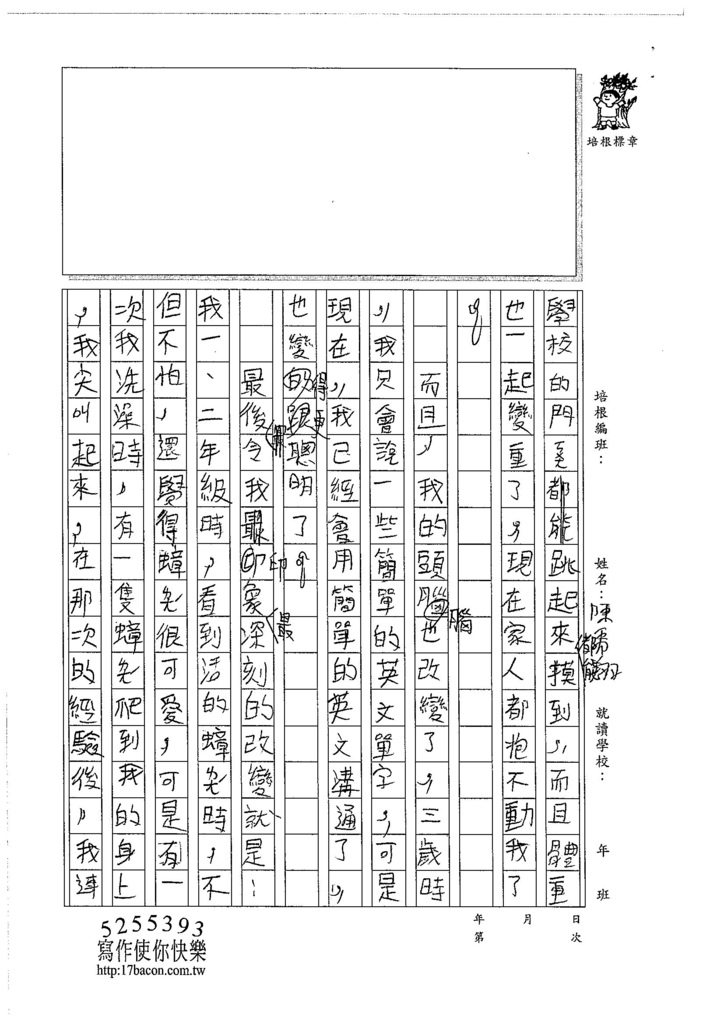 培根標章
培根編班：
姓名：陳
就讀學校：
年 班
學校的門都能跳起來摸到，而且體重
也一起變重了，現在家人都抱不動我了
。
而且，我的頭腦也改變了，三歲時
腦
，我只會說一些簡單的英文單字，可是
現在，我已經會用簡單的英文溝通了，
也變的跟聰明了。
得更
最後令我最印象深刻的改變就是：
印
最
我一、二年級時，看到活的蟑時，不
但不怕，還覺得蟑很可愛，可是有一
次我洗澡時，有一隻蟑爬到我的身上
，我尖叫起來，在那次的經驗後，我連
年 月 日
第 次
5255393
寫作使你快樂
http:17bacon.com.tw